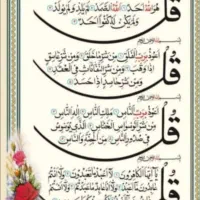 قُلْ
هُوَ اللَّهُ أَحَدٌ ۝ اللَّهُ الصَّمَدُ ۝ لَمْ يَلِدْ وَلَمْ يُولَدْ ۝
وَلَمْ يَكُن لَّهُ كُفُوًا أَحَدٌ ۝
قُلْ
أَعُوذُ بِرَبِّ الْفَلَقِ ۝ مِن شَرِّ مَا خَلَقَ ۝ وَمِن شَرِّ غَاسِقٍ
إِذَا وَقَبَ ۝ وَمِن شَرِّ النَّفَّاثَاتِ فِي الْعُقَدِ ۝
وَمِن شَرِّ حَاسِدٍ إِذَا حَسَدَ ۝
قُلْ
أَعُوذُ بِرَبِّ النَّاسِ ۝ مَلِكِ النَّاسِ ۝ إِلَٰهِ النَّاسِ ۝
مِن شَرِّ الْوَسْوَاسِ الْخَنَّاسِ ۝ الَّذِي يُوَسْوِسُ
فِي صُدُورِ النَّاسِ ۝ مِنَ الْجِنَّةِ وَالنَّاسِ ۝
قُلْ
يَا أَيُّهَا الْكَافِرُونَ ۝ لَا أَعْبُدُ مَا تَعْبُدُونَ ۝ وَلَا أَنتُمْ
عَابِدُونَ مَا أَعْبُدُ ۝ وَلَا أَنَا عَابِدٌ مَّا عَبَدتُّمْ ۝ وَلَا أَنتُمْ